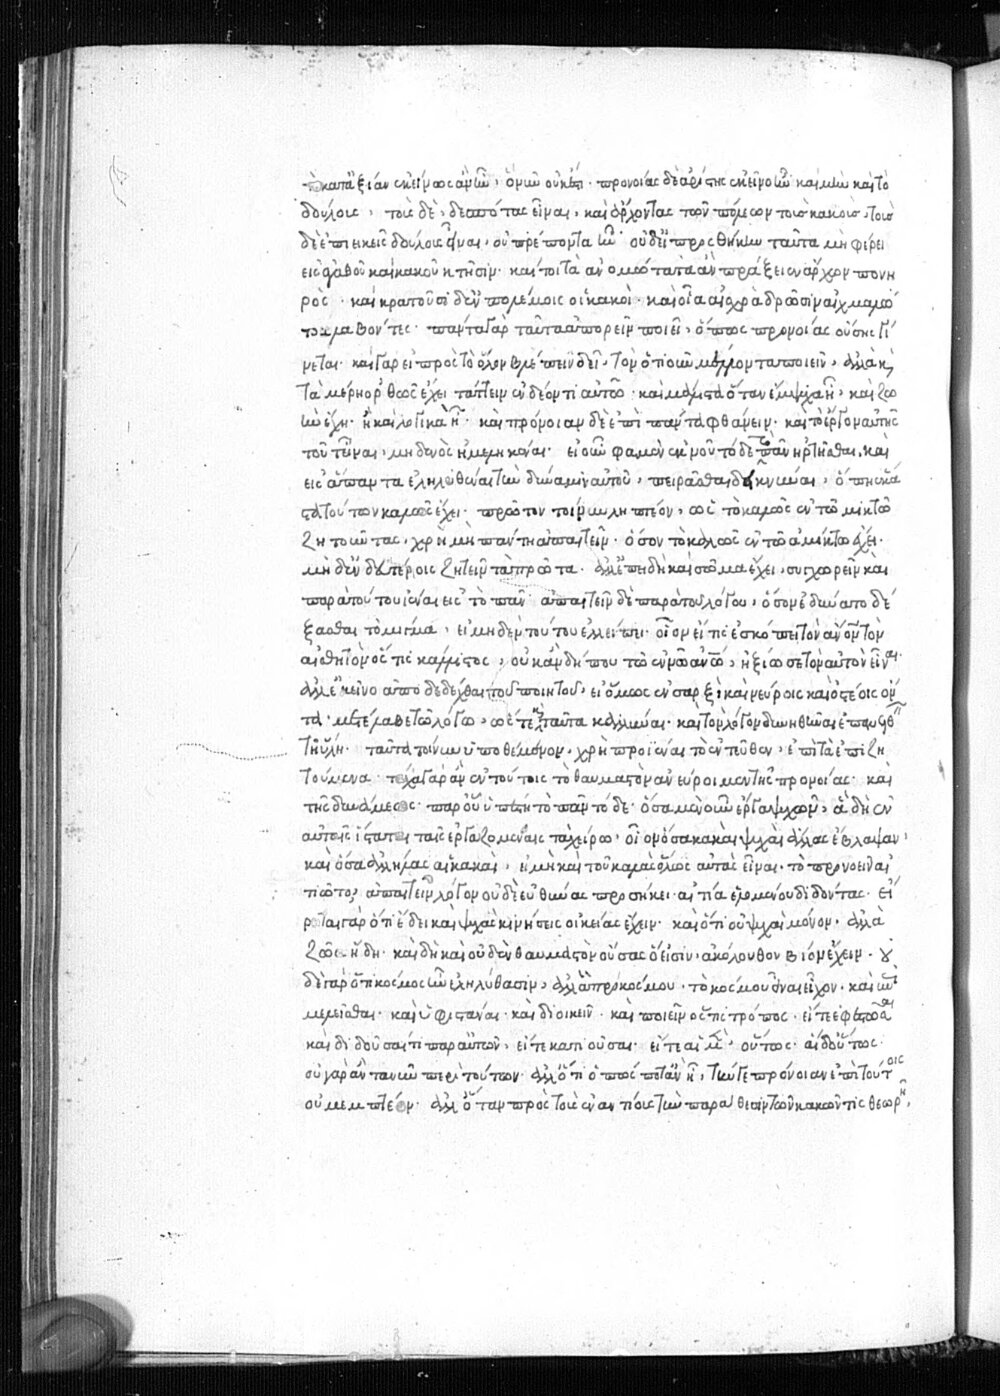 τὸ κατ' ἀξίαν ἐκείνως ἂν ἦν, ὅμως οὐκ ἔστι· προνοίας δὲ ἀρίστης ἐκεῖνο ἦν καὶ μὴν καὶ τὸ
δούλους, τοὺς δὲ, δεσπότας εἶναι, καὶ ἄρχοντας τῶν πόλεων τοὺς κακούς, τοὺς
δὲ ἐπιεικεῖς δούλους εἶναι, οὐ πρέποντα ἦν· οὐδ' εἰ προσθήκην ταῦτα μὴ φέρει
εἰς ἀγαθοῦ καὶ κακοῦ κτῆσιν· καίτοι τὰ ἀνομώτατα ἂν πράξειεν ἄρχων πονη
ρός· καὶ κρατοῦσι δ' ἐν πολέμοις οἱ κακοὶ· καὶ οἷα αἰσχρὰ δρῶσιν αἰχμαλώ
τους λαβόντες· πάντα γὰρ ταῦτα ἀπορεῖν ποιεῖ, ὅπως προνοίας οὔσης γί
νεται· καὶ γὰρ εἰ πρὸς τὸ ὅλον βλέπειν δεῖ, τὸν ὁτιοῦν μέλλοντα ποιεῖν, ἀλλὰ κ
τὰ μέρη ὀρθῶς ἔχει τάττειν ἐν δέοντι αὐτῷ· καὶ μάλιστα ὅταν ἔμψυχα ᾖ, καὶ ζω
ὴν ἔχῃ· ἢ καὶ λογικὰ ᾖ· καὶ πρόνοιαν δὲ ἐπὶ πάντα φθάνειν· καὶ τὸ ἔργον αὐτῆς
τοῦτ' εἶναι, μηδενὸς ἠμεληκέναι· εἰ οὖν φαμὲν ἐκ νοῦ τόδε τὸ πᾶν ἠρτῆσθαι, καὶ
εἰς ἅπαντα ἐληλυθέναι τὴν δύναμιν αὐτοῦ, πειρᾶσθαι δεικνύναι, ὅπη ἕκα
στα τούτων καλῶς ἔχει· πρῶτον τοίνυν ληπτέον, ὡς τὸ καλῶς ἐν τῷ μικτῷ
ζητοῦντας, χρὴ μὴ πάντη ἀπαιτεῖν· ὅσον τὸ καλῶς ἐν τῷ ἀμίκτῳ ἔχει·
μὴδ' ἐν δευτέροις ζητεῖν τὰ πρῶτα· ἀλλ' ἐπειδὴ καὶ σῶμα ἔχει, συγχωρεῖν καὶ
παρὰ τούτου ἰέναι εἰς τὸ πᾶν· ἀπαιτεῖν δὲ παρὰ τοῦ λόγου, ὅσον ἐδύνατο δέ
ξασθαι τὸ μίγμα, εἰ μηδὲν τούτου ἐλλείπει· οἷον εἴ τις ἐσκόπει τὸν ἄνον τὸν
αἰσθητὸν ὅστις κάλλιστος, οὐκ ἂν δήπου τῷ ἐν νῷ ἀνῳ, ἠξίωσε τὸν αὐτὸν εἶναι·
ἀλλ' ἐκεῖνο ἀποδεδέχθαι τοῦ ποιητοῦ, εἰ ὅμως ἐν σαρξὶ καὶ νεύροις καὶ ὀστέοις ὄν
τα· κατέλαβε τῷ λόγῳ, ὥστε καὶ ταῦτα καλλύναι· καὶ τὸν λόγον δυνηθῆναι ἐπανθεῖν
τῇ ὕλῃ· ταῦτα τοίνυν ὑποθέμενον, χρὴ προϊέναι τὸ ἐντεῦθεν, ἐπὶ τὰ ἐπιζη
τούμενα· τάχα γὰρ ἂν ἐν τούτοις τὸ θαυμαστὸν ἂν εὕροιμεν τῆς προνοίας· καὶ
τῆς δυνάμεως· παρ' οὗ ὑπέστη τὸ πᾶν τόδε· ὅσα μὲν οὖν ἔργα ψυχῶν, ἃ δὴ ἐν
αὐταῖς ἵσταται ταῖς ἐργαζομέναις τὰ χείρω, οἷον ὅσα κακαὶ ψυχαὶ ἄλλας ἔβλαψαν,
καὶ ὅσα ἀλλήλας αἱ κακαὶ, εἰ μὴ καὶ τοῦ κακὰς ὅλως αὐτὰς εἶναι· τὸ προνοεῖν αἰ
τιῷτο, ἀπαιτεῖν λόγον οὐδὲ εὐθύνας προσήκει· αἰτία ἑλομένου διδόντας· εἴ
ρηται γὰρ ὅτι ἔδει καὶ ψυχὰς κινήσεις οἰκείας ἔχειν· καὶ ὅτι οὐ ψυχαὶ μόνον· ἀλλὰ
ζῷα ἤδη· καὶ δὴ καὶ οὐδὲν θαυμαστὸν οὔσας ὅ εἰσιν, ἀκόλουθον βίον ἔχειν· οὐ
δὲ γὰρ ὅτι κόσμος ἦν ἐληλύθασιν, ἀλλὰ πρὸ κόσμου, τὸ κόσμου εἶναι εἶχον· καὶ ἐπι
μελεῖσθαι· καὶ ὑφιστάναι· καὶ διοικεῖν· καὶ ποιεῖν ὅστις τρόπος· εἴτε ἐφεστῶσαι
καὶ διδοῦσαί τι παρ' αὑτῶν, εἴτε κατιοῦσαι· εἴτε αἱ μὲν, οὕτως· αἱ δ' οὕτως·
οὐ γὰρ ἂν τανῦν περὶ τούτων· ἀλλ' ὅτι ὅπως ποτ' ἂν ᾖ, τήν γε πρόνοιαν ἐπὶ τούτοις
οὐ μεμπτέον· ἀλλ' ὅταν πρὸς τοὺς ἐναντίους τὴν παράθεσιν τῶν κακῶν τις θεωρῇ,